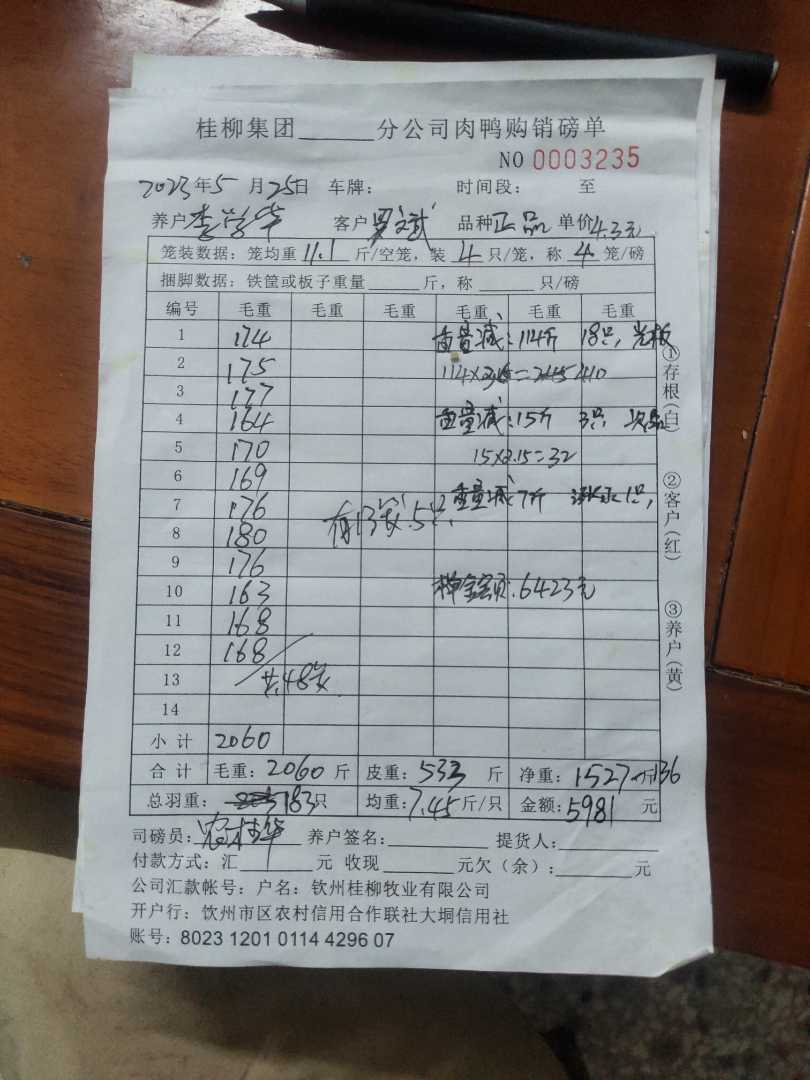 桂柳集团______分公司肉鸭购销磅单
NO 0003235
2023年5月25日 车牌: 时间段: 至
养户 客户 罗斌 品种正品 单价4.3元
笼装数据: 笼均重11.1斤/空笼, 装4只/笼, 称4笼/磅
捆脚数据: 铁筐或板子重量______斤, 称______只/磅
编号 毛重 毛重 毛重 毛重 毛重 毛重
1 174 重量减: 114斤 18只,
2 175
3 177
4 164 重量减: 15斤 3只 次品
5 170 15×2.15=32
6 169
7 176 重量减 7斤 1只,
8 180
9 176
10 163 金额: 6423元
11 168
12 168
13 共48笼
14
小计 2060
合计 毛重: 2060斤 皮重: 533斤 净重: 1527斤 136
总羽重: 183只 均重: 7.45斤/只 金额: 5981元
司磅员: 养户签名: 提货人:
付款方式: 汇______元 收现______元欠(余): ______元
公司汇款帐号: 户名: 钦州桂柳牧业有限公司
开户行: 饮州市区农村信用合作联社大垌信用社
账号: 8023 1201 0114 4296 07
①存根(白)
②客户(红)
③养户(黄)